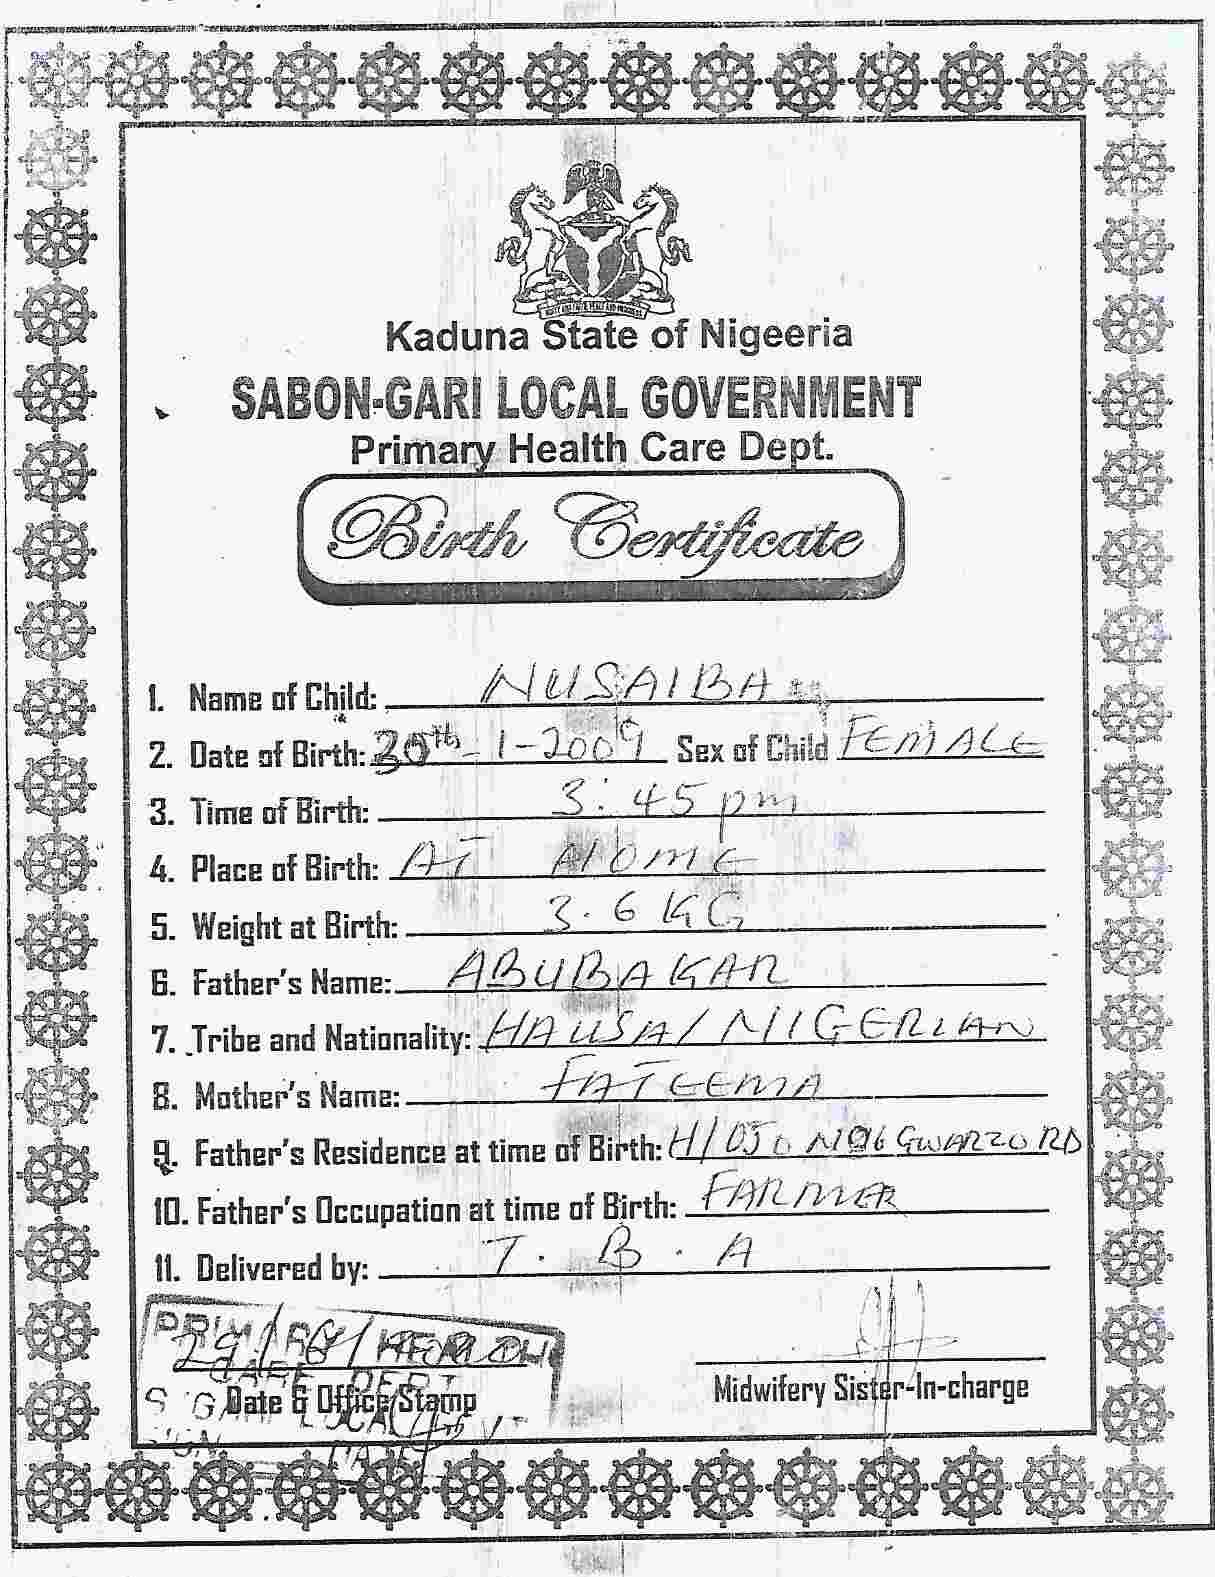 Kaduna State of Nigeeria
SABON-GARI LOCAL GOVERNMENT
Primary Health Care Dept.
Birth Certificate
1. Name of Child: NUSAIBA
2. Date of Birth: 30th-1-2009 Sex of Child FEMALE
3. Time of Birth: 3:45pm
4. Place of Birth: AT HOME
5. Weight at Birth: 3.6 KG
6. Father's Name: ABUBAKAR
7. Tribe and Nationality: HAUSA/NIGERIAN
8. Mother's Name: FATEEMA
9. Father's Residence at time of Birth: GWARZO RD
10. Father's Occupation at time of Birth: FARMER
11. Delivered by: T.B.A
PRIMARY HEALTH
CARE DEPT
Date & Office Stamp
Midwifery Sister-In-charge